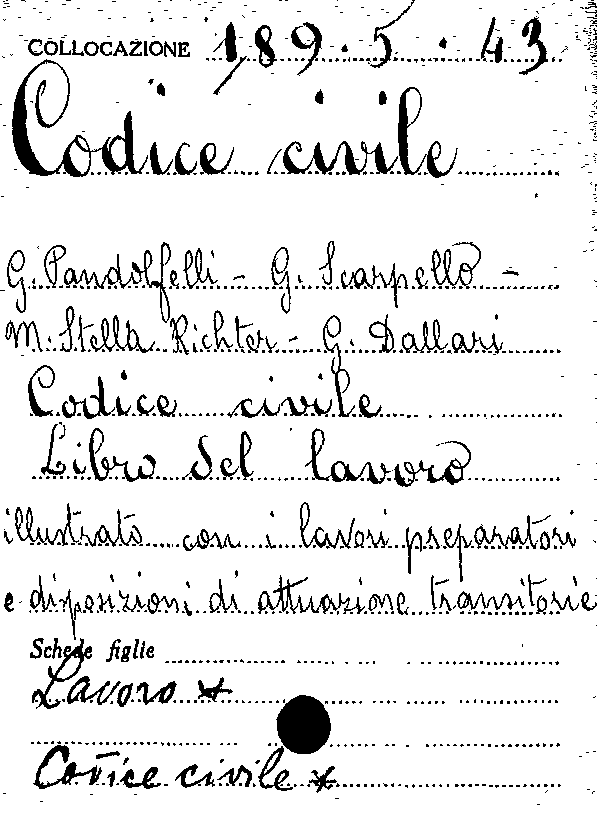 COLLOCAZIONE 189.5.43
Codice civile
G. Pandolfelli - G. Scarpello -
M. Stella Richter - G. Dallari
Codice civile
Libro del lavoro
illustrato con i lavori preparatori
e disposizioni di attuazione transitorie
Schede figlie
Lavoro *
Codice civile *